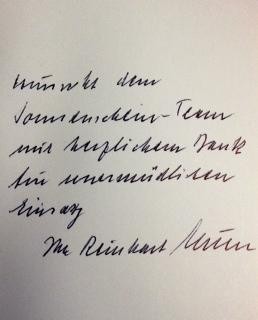 wünscht dem
Sonnenschein-Team
mit herzlichem Dank
für unermüdlichen
Einsatz
Ihr Reinhart